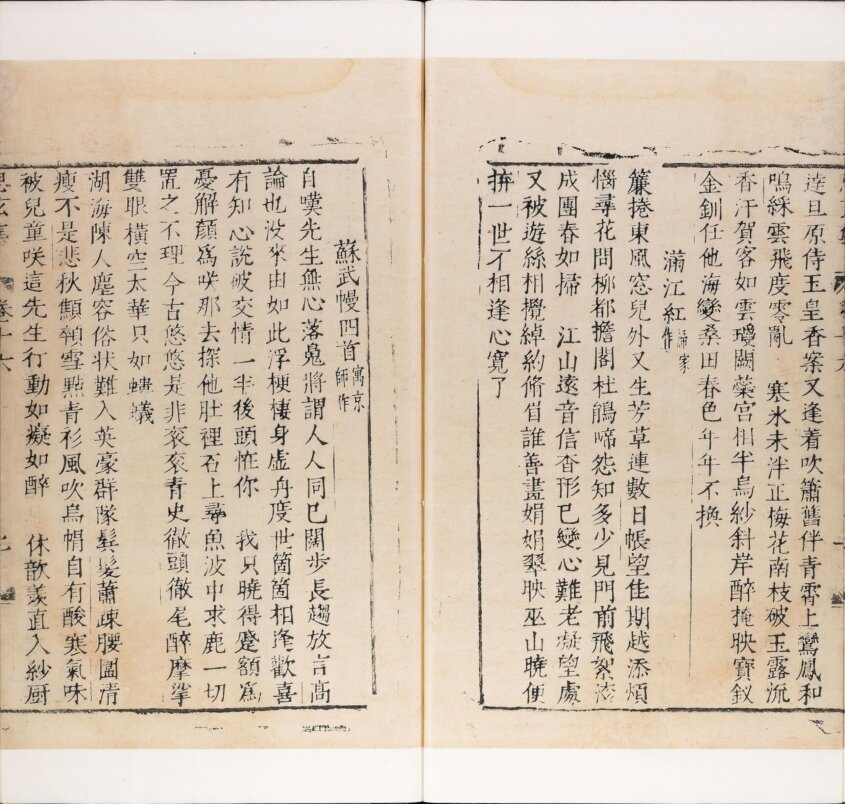 達旦原侍玉皇香案又逢着吹簫舊伴青霄上鸞鳳和
鳴綵雲飛度零亂　寒氷未泮正梅花南枝破玉露流
香汗賀客如雲璦闕蘂宮相半烏紗斜岸醉掩映寶釵
金釧任他海變桑田春色年年不換
滿江紅歸家作
簾捲東風窓兒外又生芳草連數日帳望佳期越添煩
惱尋花問柳都擔閣杜鵑啼怨知多少見門前飛絮漆
成團春如掃　江山遠音信杳形已變心難老凝望處
又被遊絲相攪綽約脩眉誰善畫娟娟翠映巫山曉便
拚一世不相逢心寬了
蘇武慢四首寓京師作
自嘆先生無心落魄將謂人人同已闊步長趨放言高
論也沒來由如此浮梗棲身虛舟度世箇箇相逢歡喜
有知心說破交情一半後頭恠你　我只曉得蹙額爲
憂解顏爲咲那去探他肚裡石上尋魚波中求鹿一切
置之不理今古悠悠是非衮衮青史徹頭徹尾醉摩挲
雙眼橫空太華只如螻蟻
湖海陳人塵容俗状難入英豪群隊鬂髮蕭疎腰圍清
瘦不是悲秋顦顇雪點青衫風吹烏帽自有酸寒氣味
被兒童咲這先生行動如癡如醉　休歆羨直入紗厨
卷十六